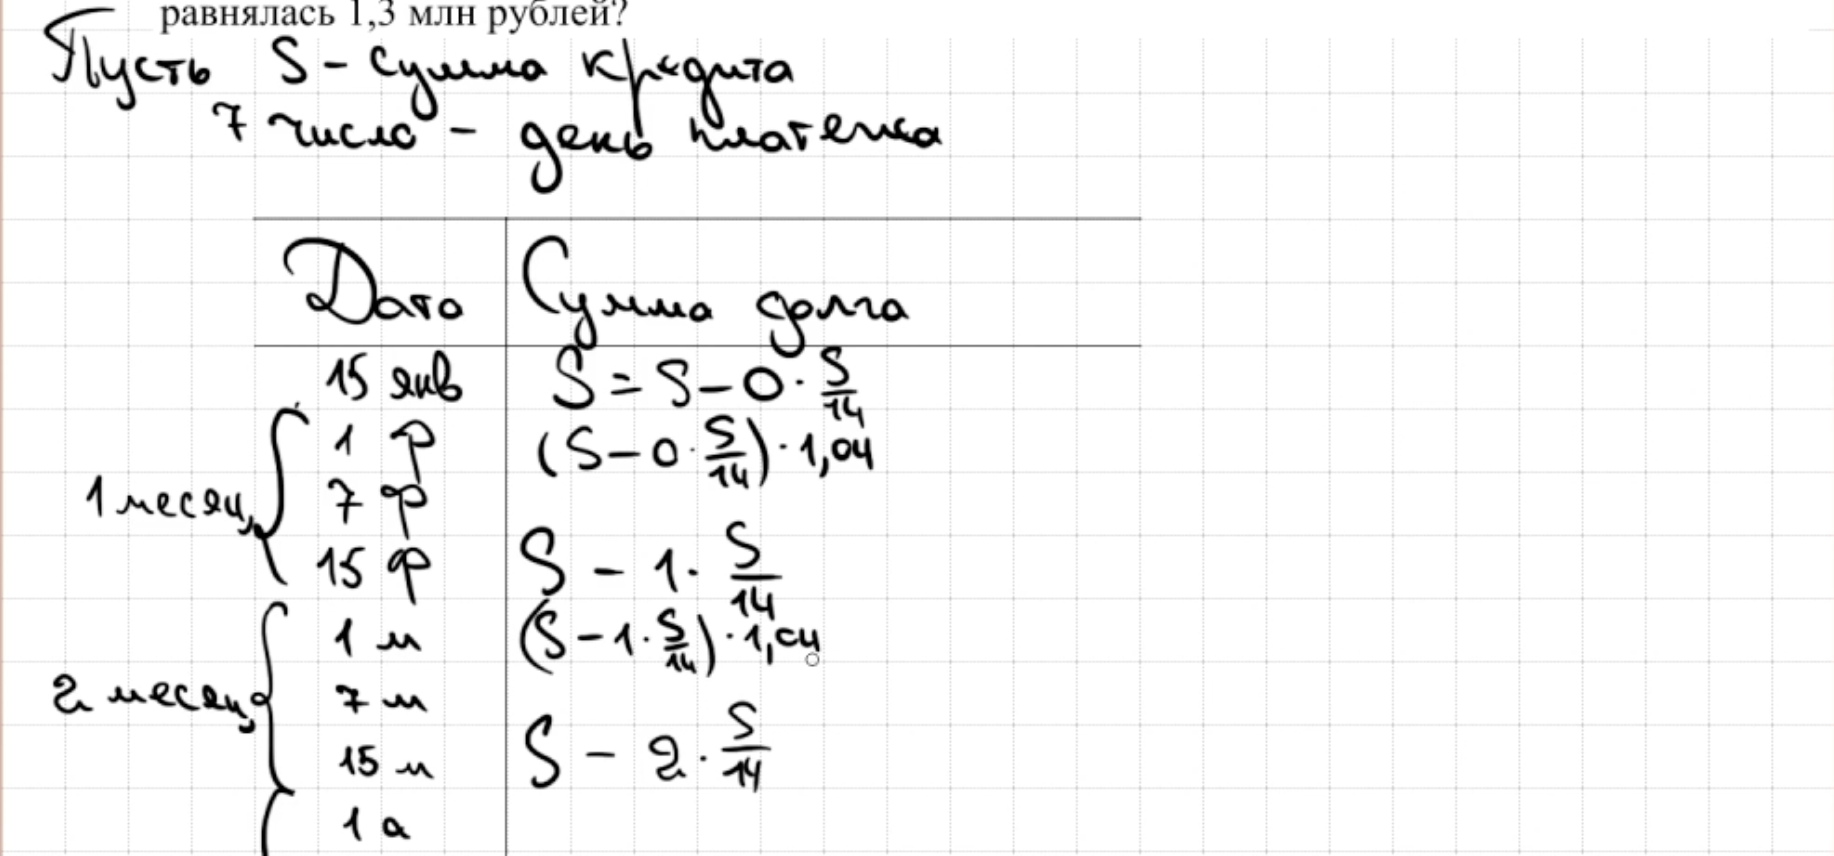 равнялась 1,3 млн рублей?
Пусть S - сумма кредита
7 число - день платежа
Дата Сумма долга
15 янв S = S - 0 · S/14
1 ф (S - 0 · S/14) · 1,04
1 месяц 7 ф
15 ф S - 1 · S/14
1 м (S - 1 · S/14) · 1,04
2 месяц 7 м
15 м S - 2 · S/14
1 а